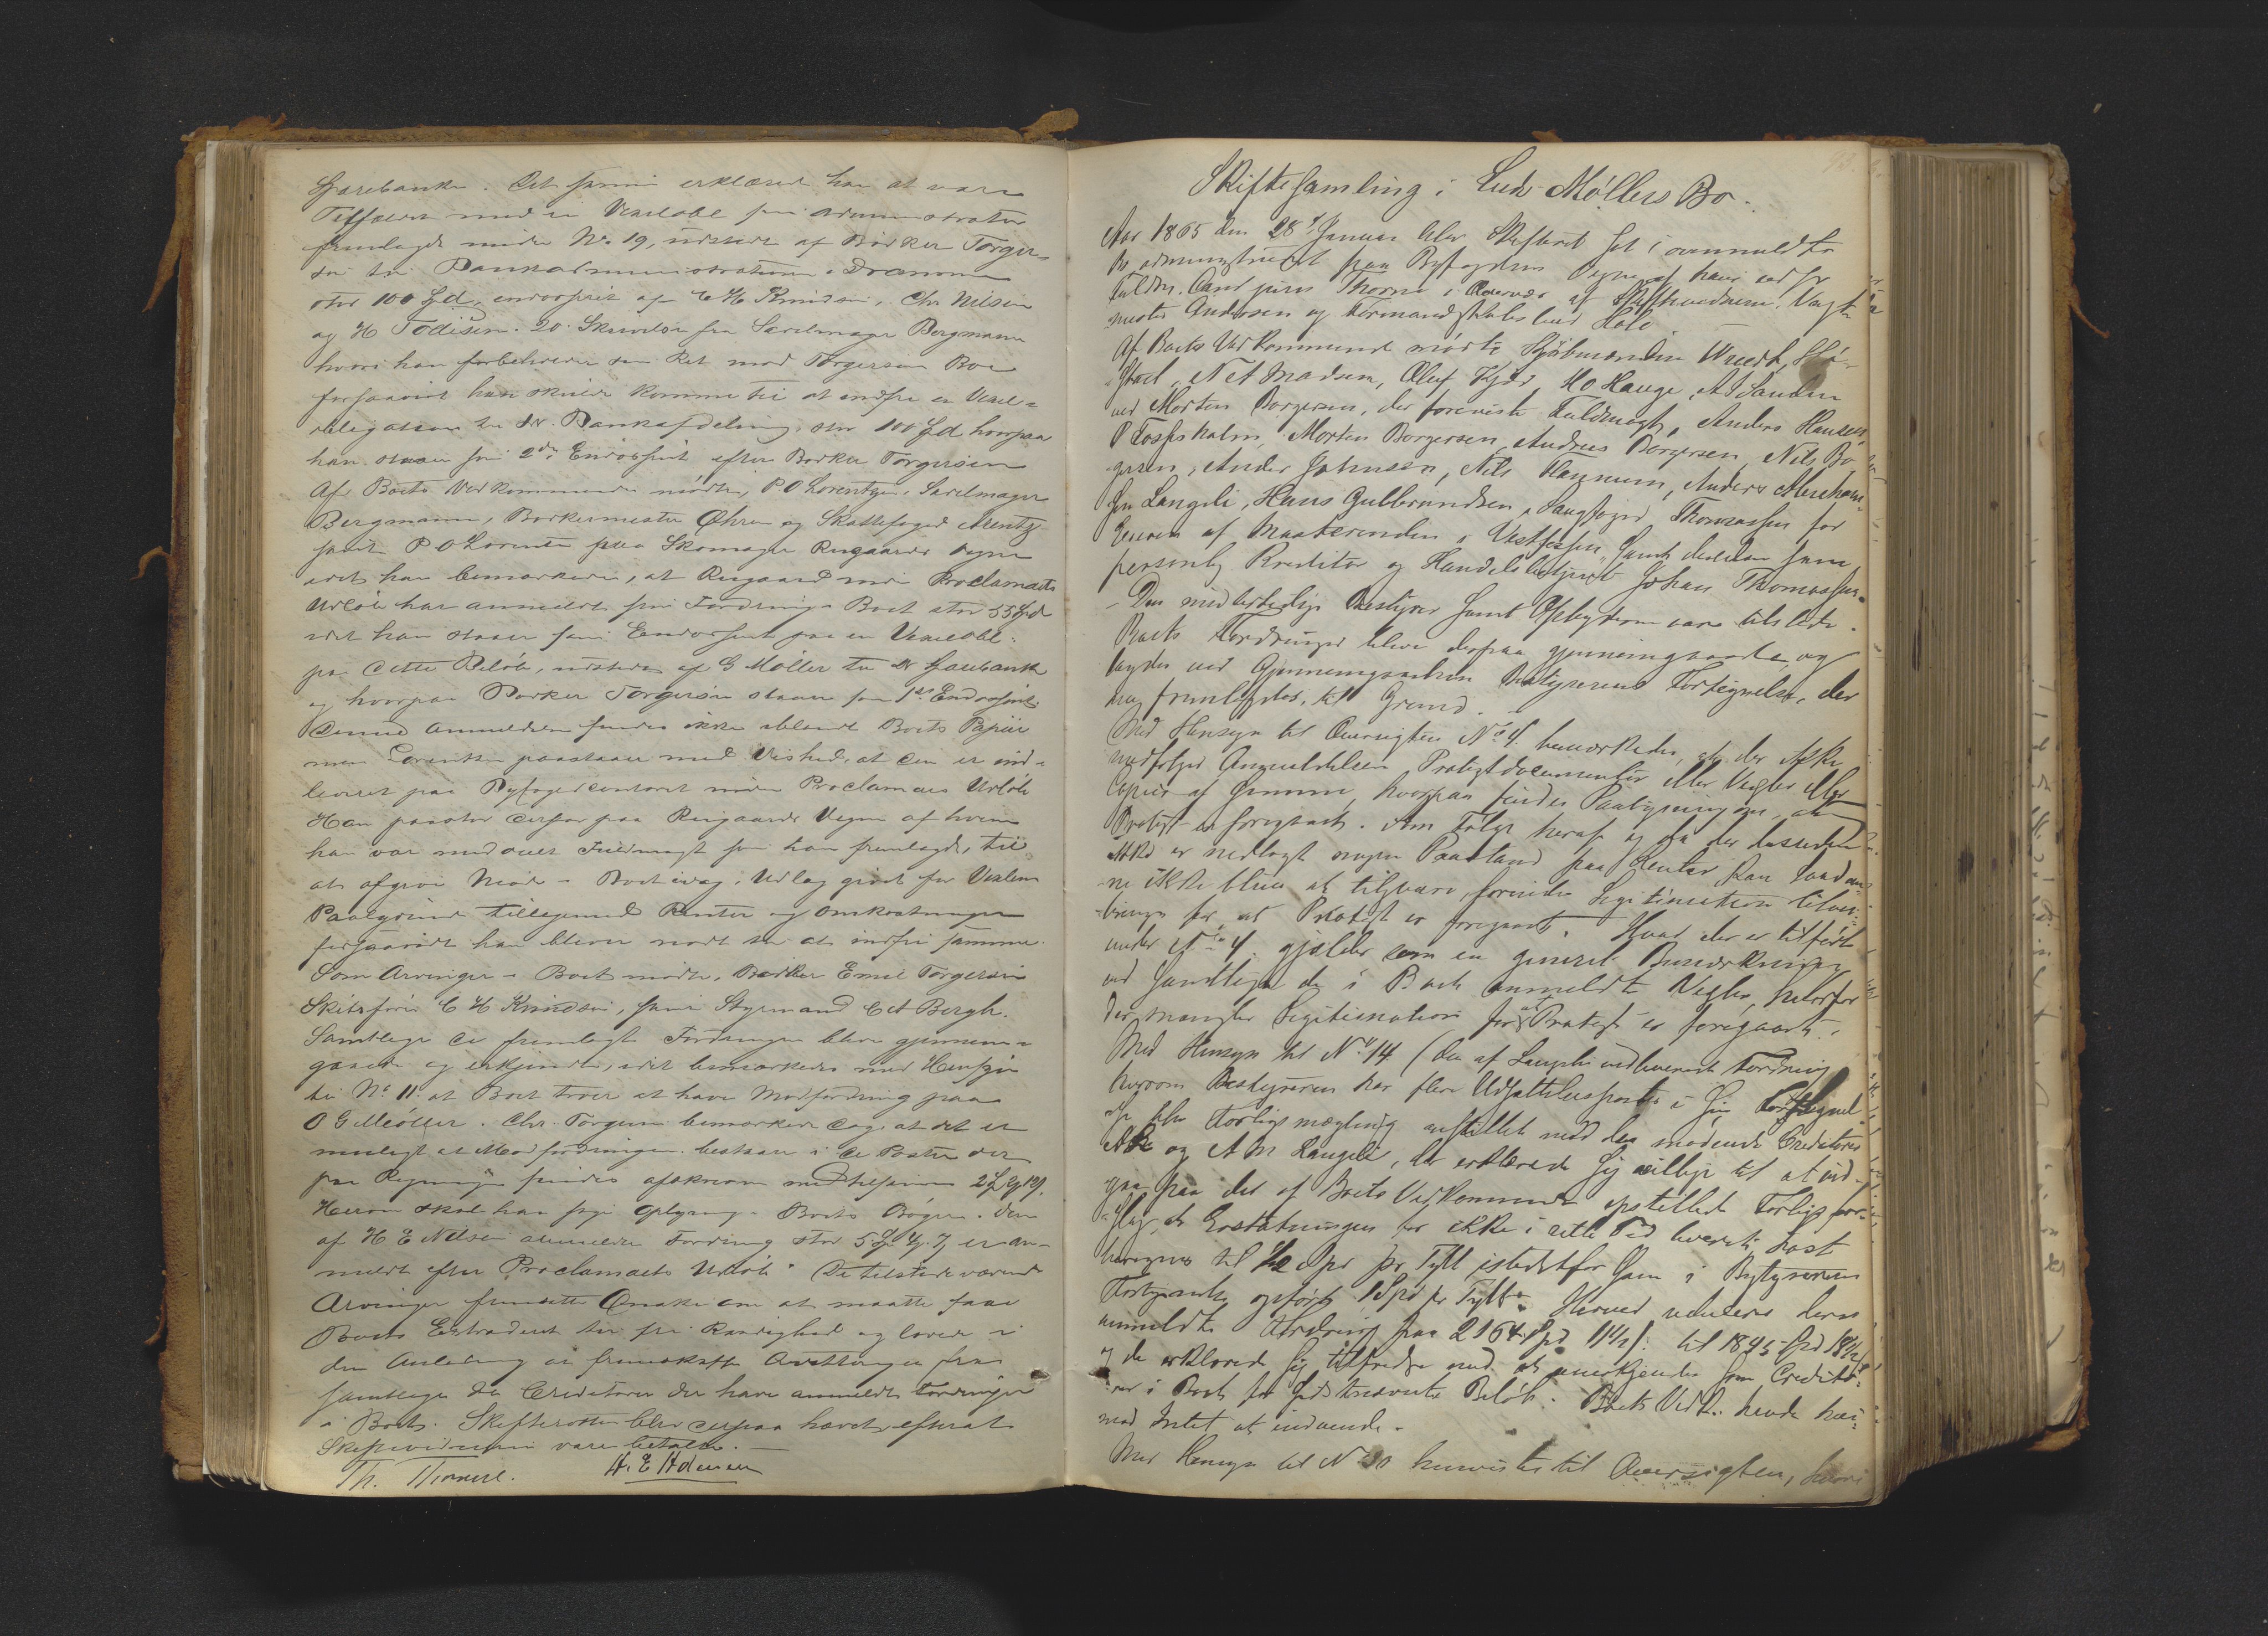 Sparebanken. Det samme erklæred han at være
Tilfældet med en Vexelobl. som Administrator
fremlagde under No 19, udstedt af Barker Torger-
sen til Bankadministrationen i Drammen
stor 100 Spd, endosseret af C H Knudsen, Chr. Nilsen
og H Todisen. 20. Skrivelse fra Sadelmager Bergmann
hvori han forbeholder sin Ret mod Torgersens Bo
forsaavidt han skulde komme til at indfri en Vexel-
obligation til Dr. Bankafdeling, stor 100 Spd hvorpaa
han staar som 2den Endossent efter Barker Torgersen
Af Boets Vedkommende mødte, P O Lorentzen, Sadelmager
Bergmann, Barkermester Øhren og Skattefoged Arentz
samt P O Lorentzen paa Skomager Ringaards Vegne
idet han bemærkede, at Ringaard inden Proclamaets
Udløb har anmeldt sin Fordring i Boet stor 55 Spd
idet han staar som Endossent paa en Vexelobl:
paa dette Beløb, udstedt af G Møller til Dr Sparebank
og hvorpaa Barker Torgersen staaer som 1ste Endossent.
Denne Anmeldelse findes ikke iblandt Boets Papirer
men Lorentzen paastaaer med Vished, at den er ind-
leveret paa Byfogedcontoret inden Proclamaets Udløb
Han paastod derfor paa Ringaards Vegne af hvem
han var meddelt Fuldmagt som han fremlagde, til
at afgive Møde i Boet idag, Udlæg givet for Vexlens
Paalydende tilligemed Renter og Omkostninger
forsaavidt han bliver nødt til at indfri samme.
Som Arvinger i Boet mødte, Barker Emil Torgersen
Skibsfører C H Knudsen, samt Styrmand C A Bergh.
Samtlige de fremlagte Fordringer bleve gjennem-
gaaede og erkjendte, idet bemærkedes med Hensyn
til No 11. at Boet troer at have Modfordring paa
O G Møller. Chr. Torgersen bemærkede dog, at det er
muligt at Modfordringen bestaaer i de Poster der
paa Regningen findes afskrevne med tilsammen
Herom skal han søge Oplysning i Boets Bøger. Den
af H E Nilsen anmeldte Fordring stor 5 Spd er an-
meldt efter Proclamaets Udløb. De tilstedeværende
Arvinger fremsatte Ønske om at maatte faae
Boets Extraderet til fri Raadighed og lovede i
den Anledning at fremskaffe Qvitteringer fra
samtlige de Creditorer der have anmeldt Fordringer
i Boet. Skifteretten blev derpaa hævet efterat
Skiftevidnerne vare betalte. -
Th. Thorne. H. E Holmsen
Skiftesamling i Ludv Møllers Bo.
Aar 1865 den 28de Januar blev Skifteret sat i ovenmeldte
Bo, administreret paa Byfogdens Vegne af hans edsv
Fuldm. Cand juris Thorne i Overvær af Skiftevidnerne: Vagt-
mester Andersen og Formandskabsbud Hole.
Af Boets Vedkommende mødte Kjøbmændene Wrede,
N A Madsen, Oluf Kydd, H O Hauge, A Sanden
ved Morten Borgersen, der foreviste Fuldmagt, Anders Hansen,
P Fosseholm, Morten Borgersen, Andreas Borgersen, Nils Bor-
gersen, Anders Johnsen, Nils Haugnum, Anders
Langeli, Hans Gulbrandsen, Saugfoged Thomassen for
Eieren af i Vestfossen, samt desuden som
personlig Kreditor og Handelsbetjent Johan Thomassen.
- Den midlertidige Bestyrer samt Opbyderen vare tilstede.
Boets Fordringer bleve derpaa gjennemgaaede, og
lagdes ved Gjennemgaaelsen Bestyrerens Fortegnelse, der
nu fremlagdes, til Grund. -
Med Hensyn til Oversigten No 4. bemærkedes, at der ikke
medfølger Anmeldelsen Protestdocumenter eller Vexler eller
Copier af samme, hvorpaa findes Paategning om, at
Protest er foregaaet. Som Følge heraf og da der desuden
ikke er nedlagt nogen Paastand paa Renter kan saadan-
ne ikke blive at tilsvare, forinden Legitimation tilvei-
bringes for, at Protest er foregaaet. Hvad der er tilført
under No 4. gjælder som en generel Bemærkning
ved samtlige de i Boet anmeldte Vexler, hvorfor
der mangler Legitimation for at Protest er foregaaet.
Med Hensyn til No 14 (den af Langeli indleverede Fordring
hvorom Bestyreren har flere Udsættelsesposter i sin Fortegnel-
se) blev Forligsmægling anstillet med den mødende Creditorer
og A M Langeli, der erklærede sig villige til at ind-
gaae paa det af Boets Vedkommende opstillede Forligsfor-
slag, at Erstatningen for ikke i rette Tid leveret Last
beregnes til 1/2 Spd pr Tylt istedetfor som i Bestyrerens
Fortegnelse opført 1 Spd pr Tylft. Herved reduceres deres
anmeldte Fordring fra 2164 Spd 11½ s: til 1895 Spd 18½ s
og de erklærede sig tilfredse med at anerkjendes som Credito-
rer i Boet for sidstnævnte Beløb. Boets Vedk. havde her-
mod Intet at indvende. -
Med Hensyn til No 30 henvistes til Oversigten, hvori